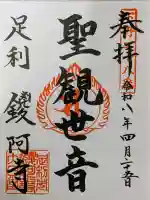 奉拝
令和八年四月二十五日
聖観世音
足利
鑁阿寺